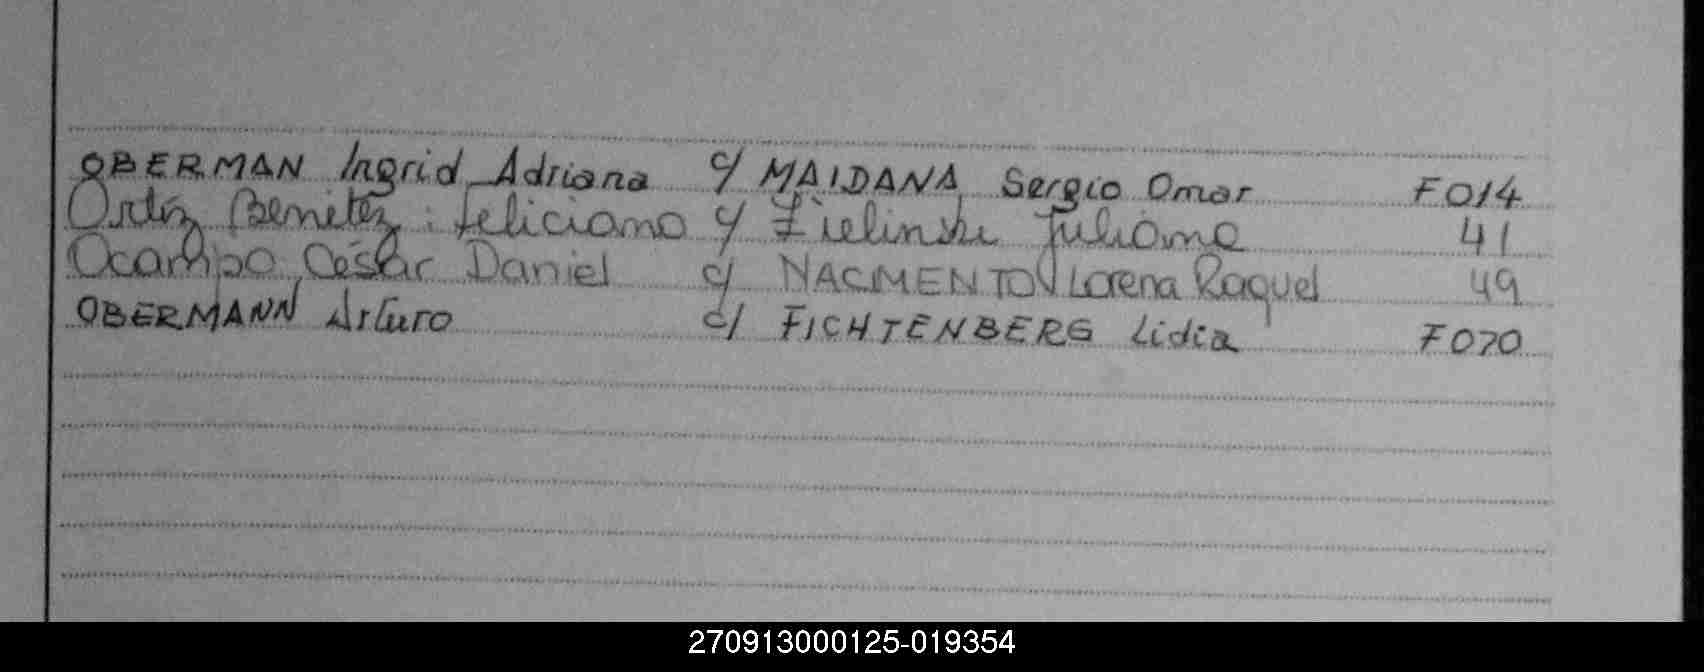 OBERMAN Ingrid Adriana c/ MAIDANA Sergio Omar F014
Ortíz Benítez: Feliciano c/ Zielinski Juliana 41
Ocampo César Daniel c/ NACIMENTO Lorena Raquel 49
OBERMANN Arturo c/ FICHTENBERG Lidia F070
270913000125-019354